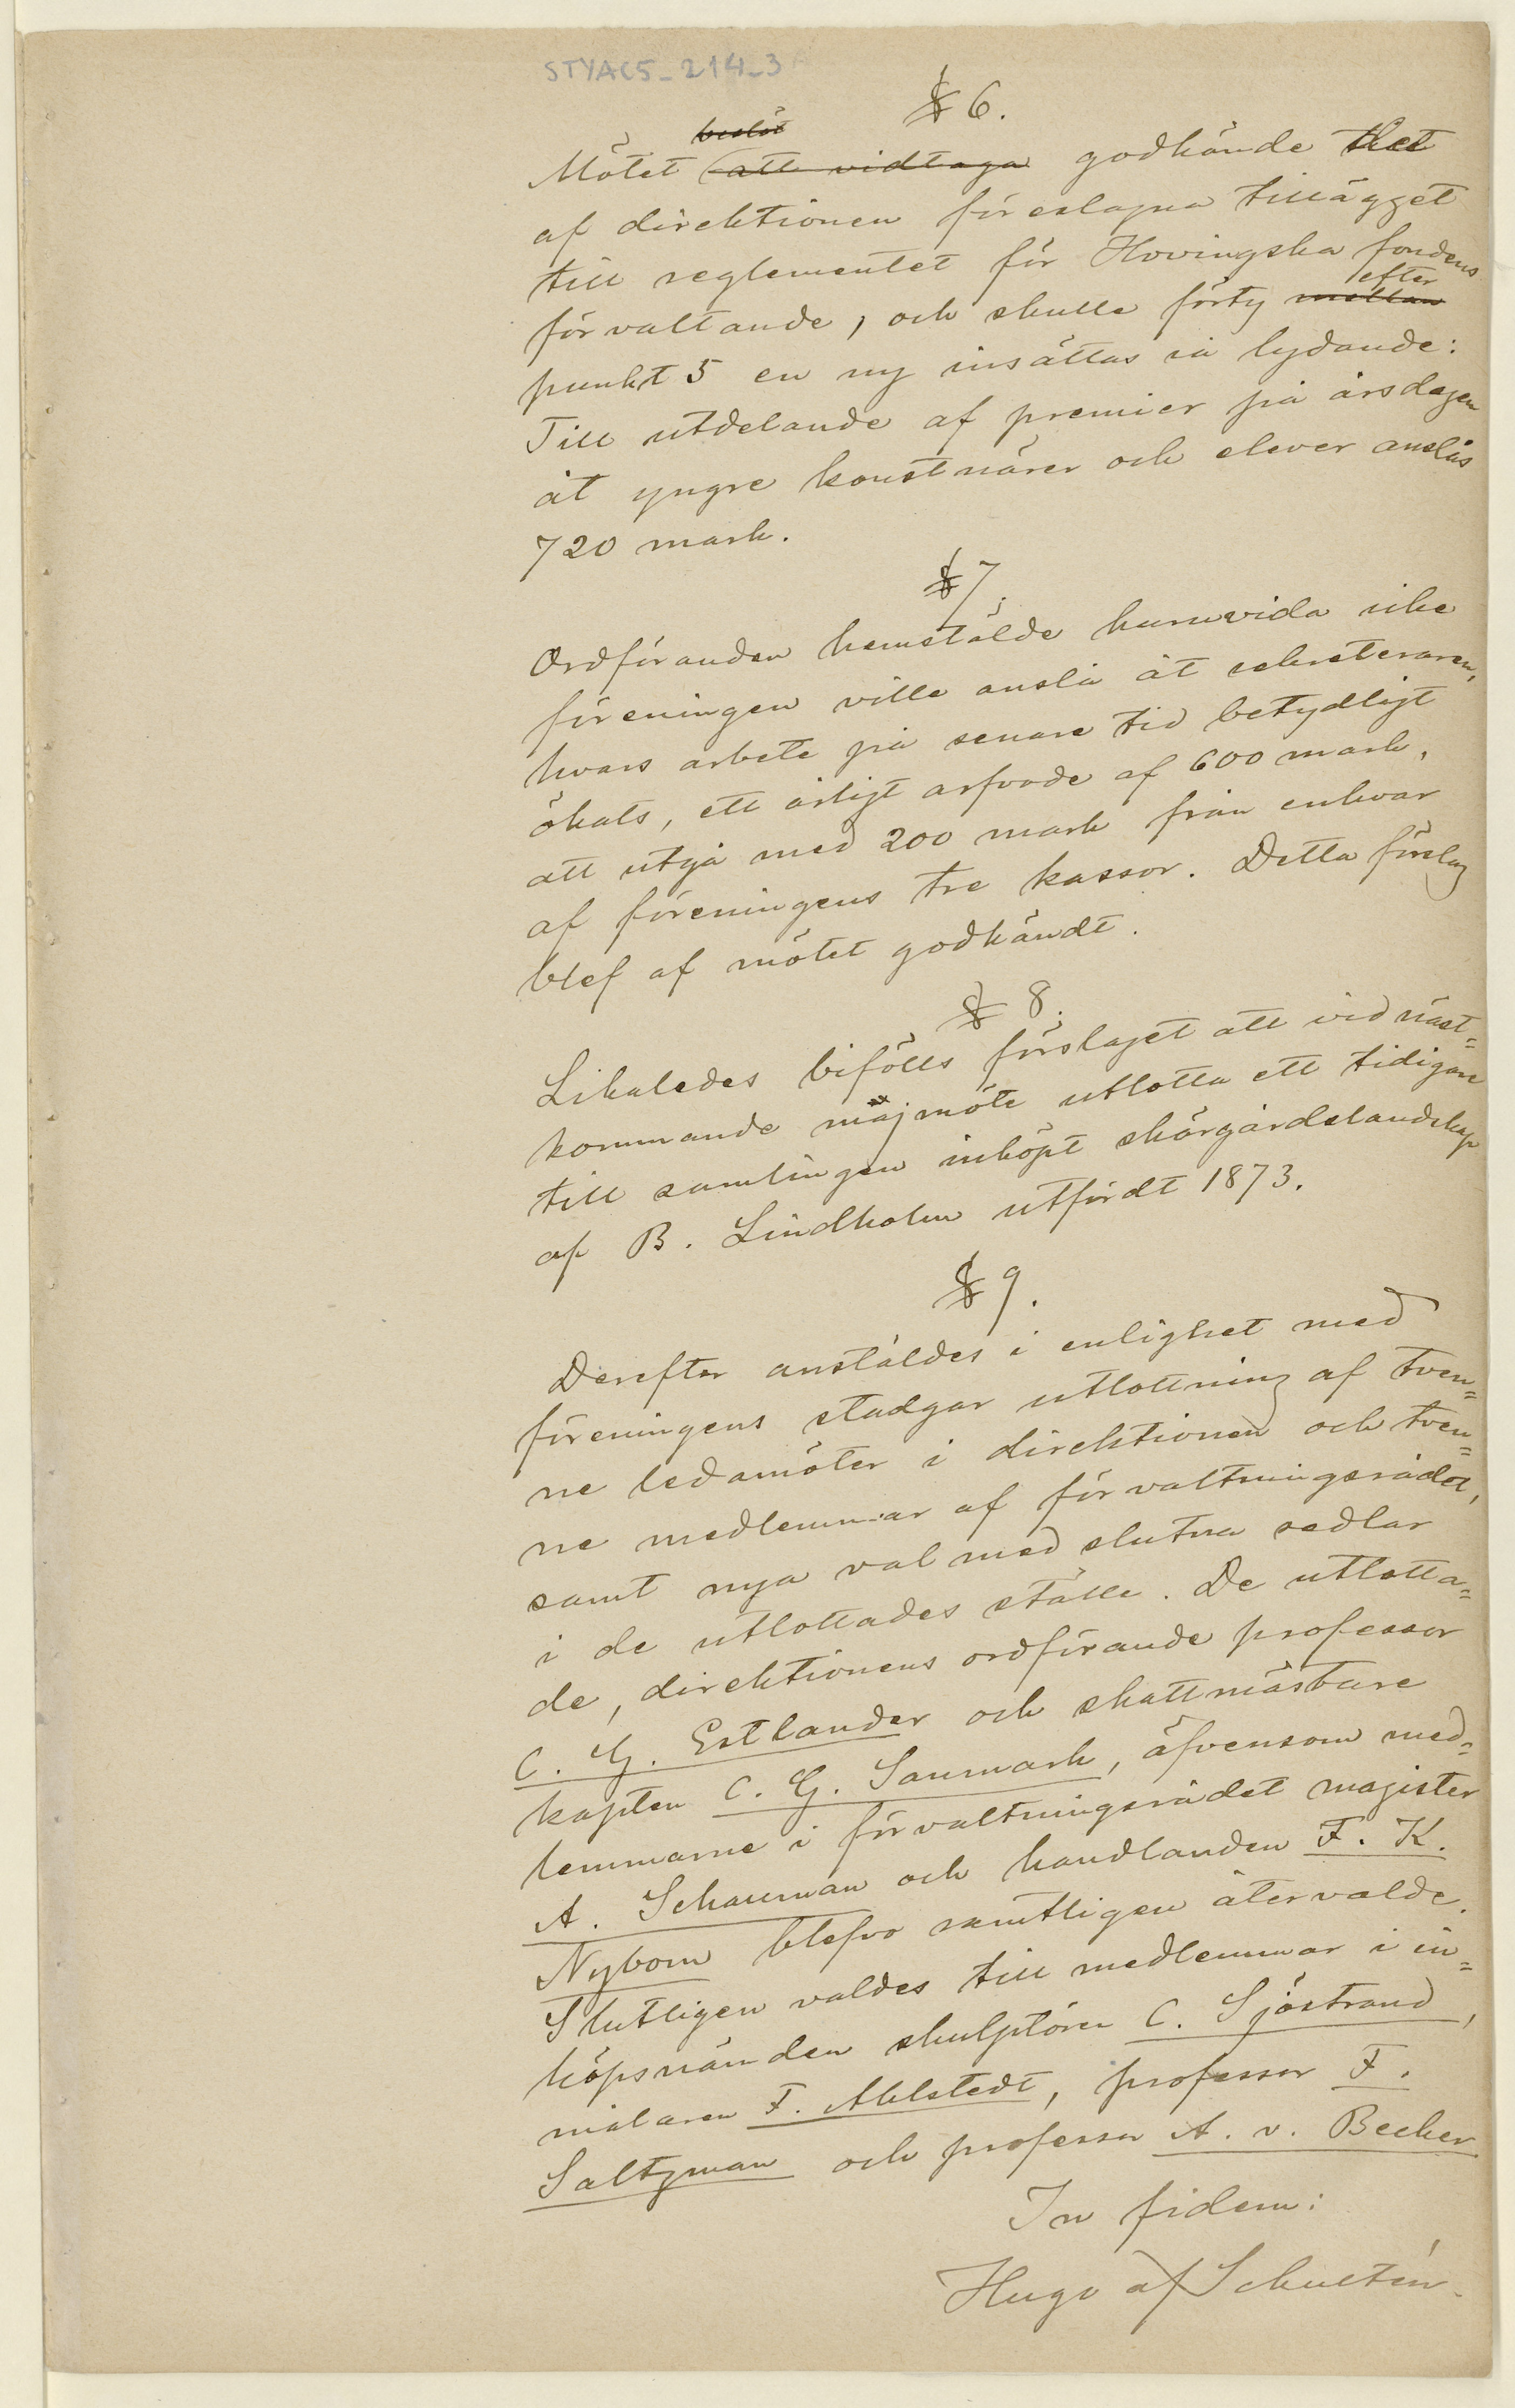 STYAC5_214_3
§ 6.
beslöt
Mötet att vidtaga godkände det
af direktionen föreslagna tillägget
till reglementet för Hovingska fondens
efter
förvaltande, och skulle förty mellan
punkt 5 en ny insättas så lydande:
Till utdelande af premier på årsdagen
åt yngre konstnärer och elever anslås
720 mark.
§ 7.
Ordföranden hemstälde huruvida icke
föreningen ville anslå åt sekreteraren,
hvars arbete på senare tid betydligt
ökats, ett årligt arfvode af 600 mark,
att utgå med 200 mark från enhvar
af föreningens tre kassor. Detta förslag
blef af mötet godkändt.
§ 8.
Likaledes bifölls förslaget att vid näst=
kommande majmöte utlotta ett tidigare
till samlingen inköpt skärgårdslandskap
af B. Lindholm utfördt 1873.
§ 9.
Derefter anstäldes i enlighet med
föreningens stadgar utlottning af tven=
ne ledamöter i direktionen och tven=
ne medlemmar af förvaltningsrådet,
samt nya val med slutna sedlar
i de utlottades ställe. De utlotta=
de, direktionens ordförande professor
C. G. Estlander och skattmästare
kapten C. G. Sanmark, äfvensom med=
lemmarne i förvaltningsrådet magister
A. Schauman och handlanden F. K.
Nybom blefvo samtligen återvalde.
Slutligen valdes till medlemmar i in=
köpsnämnden skulptören C. Sjöstrand,
målaren F. Ahlstedt, professor F.
Saltzman och professor A. v. Becker
In fidem:
Hugo af Schultén.